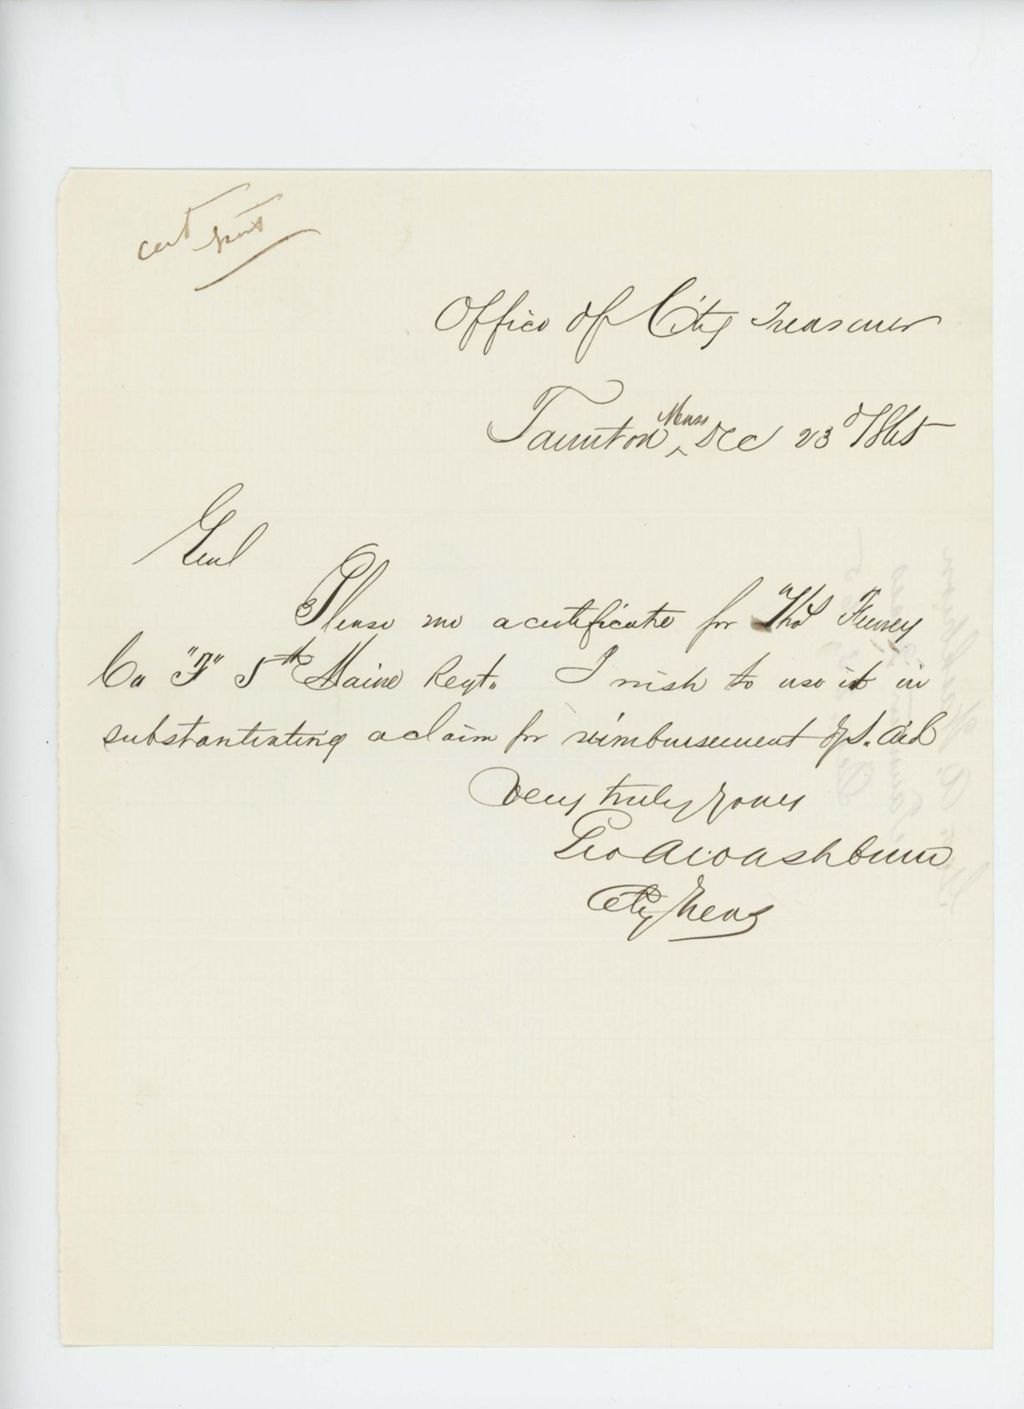 cert sent
Office of City Treasurer
Taunton Mass Dec 23d 1865
Genl
Please me a certificate for Thos Feeney
Co "F" 5th Maine Regt. I wish to use it in
substantiating a claim for reimbursement of S. Aid
Very truly yours
Geo A Washburn
City Treas